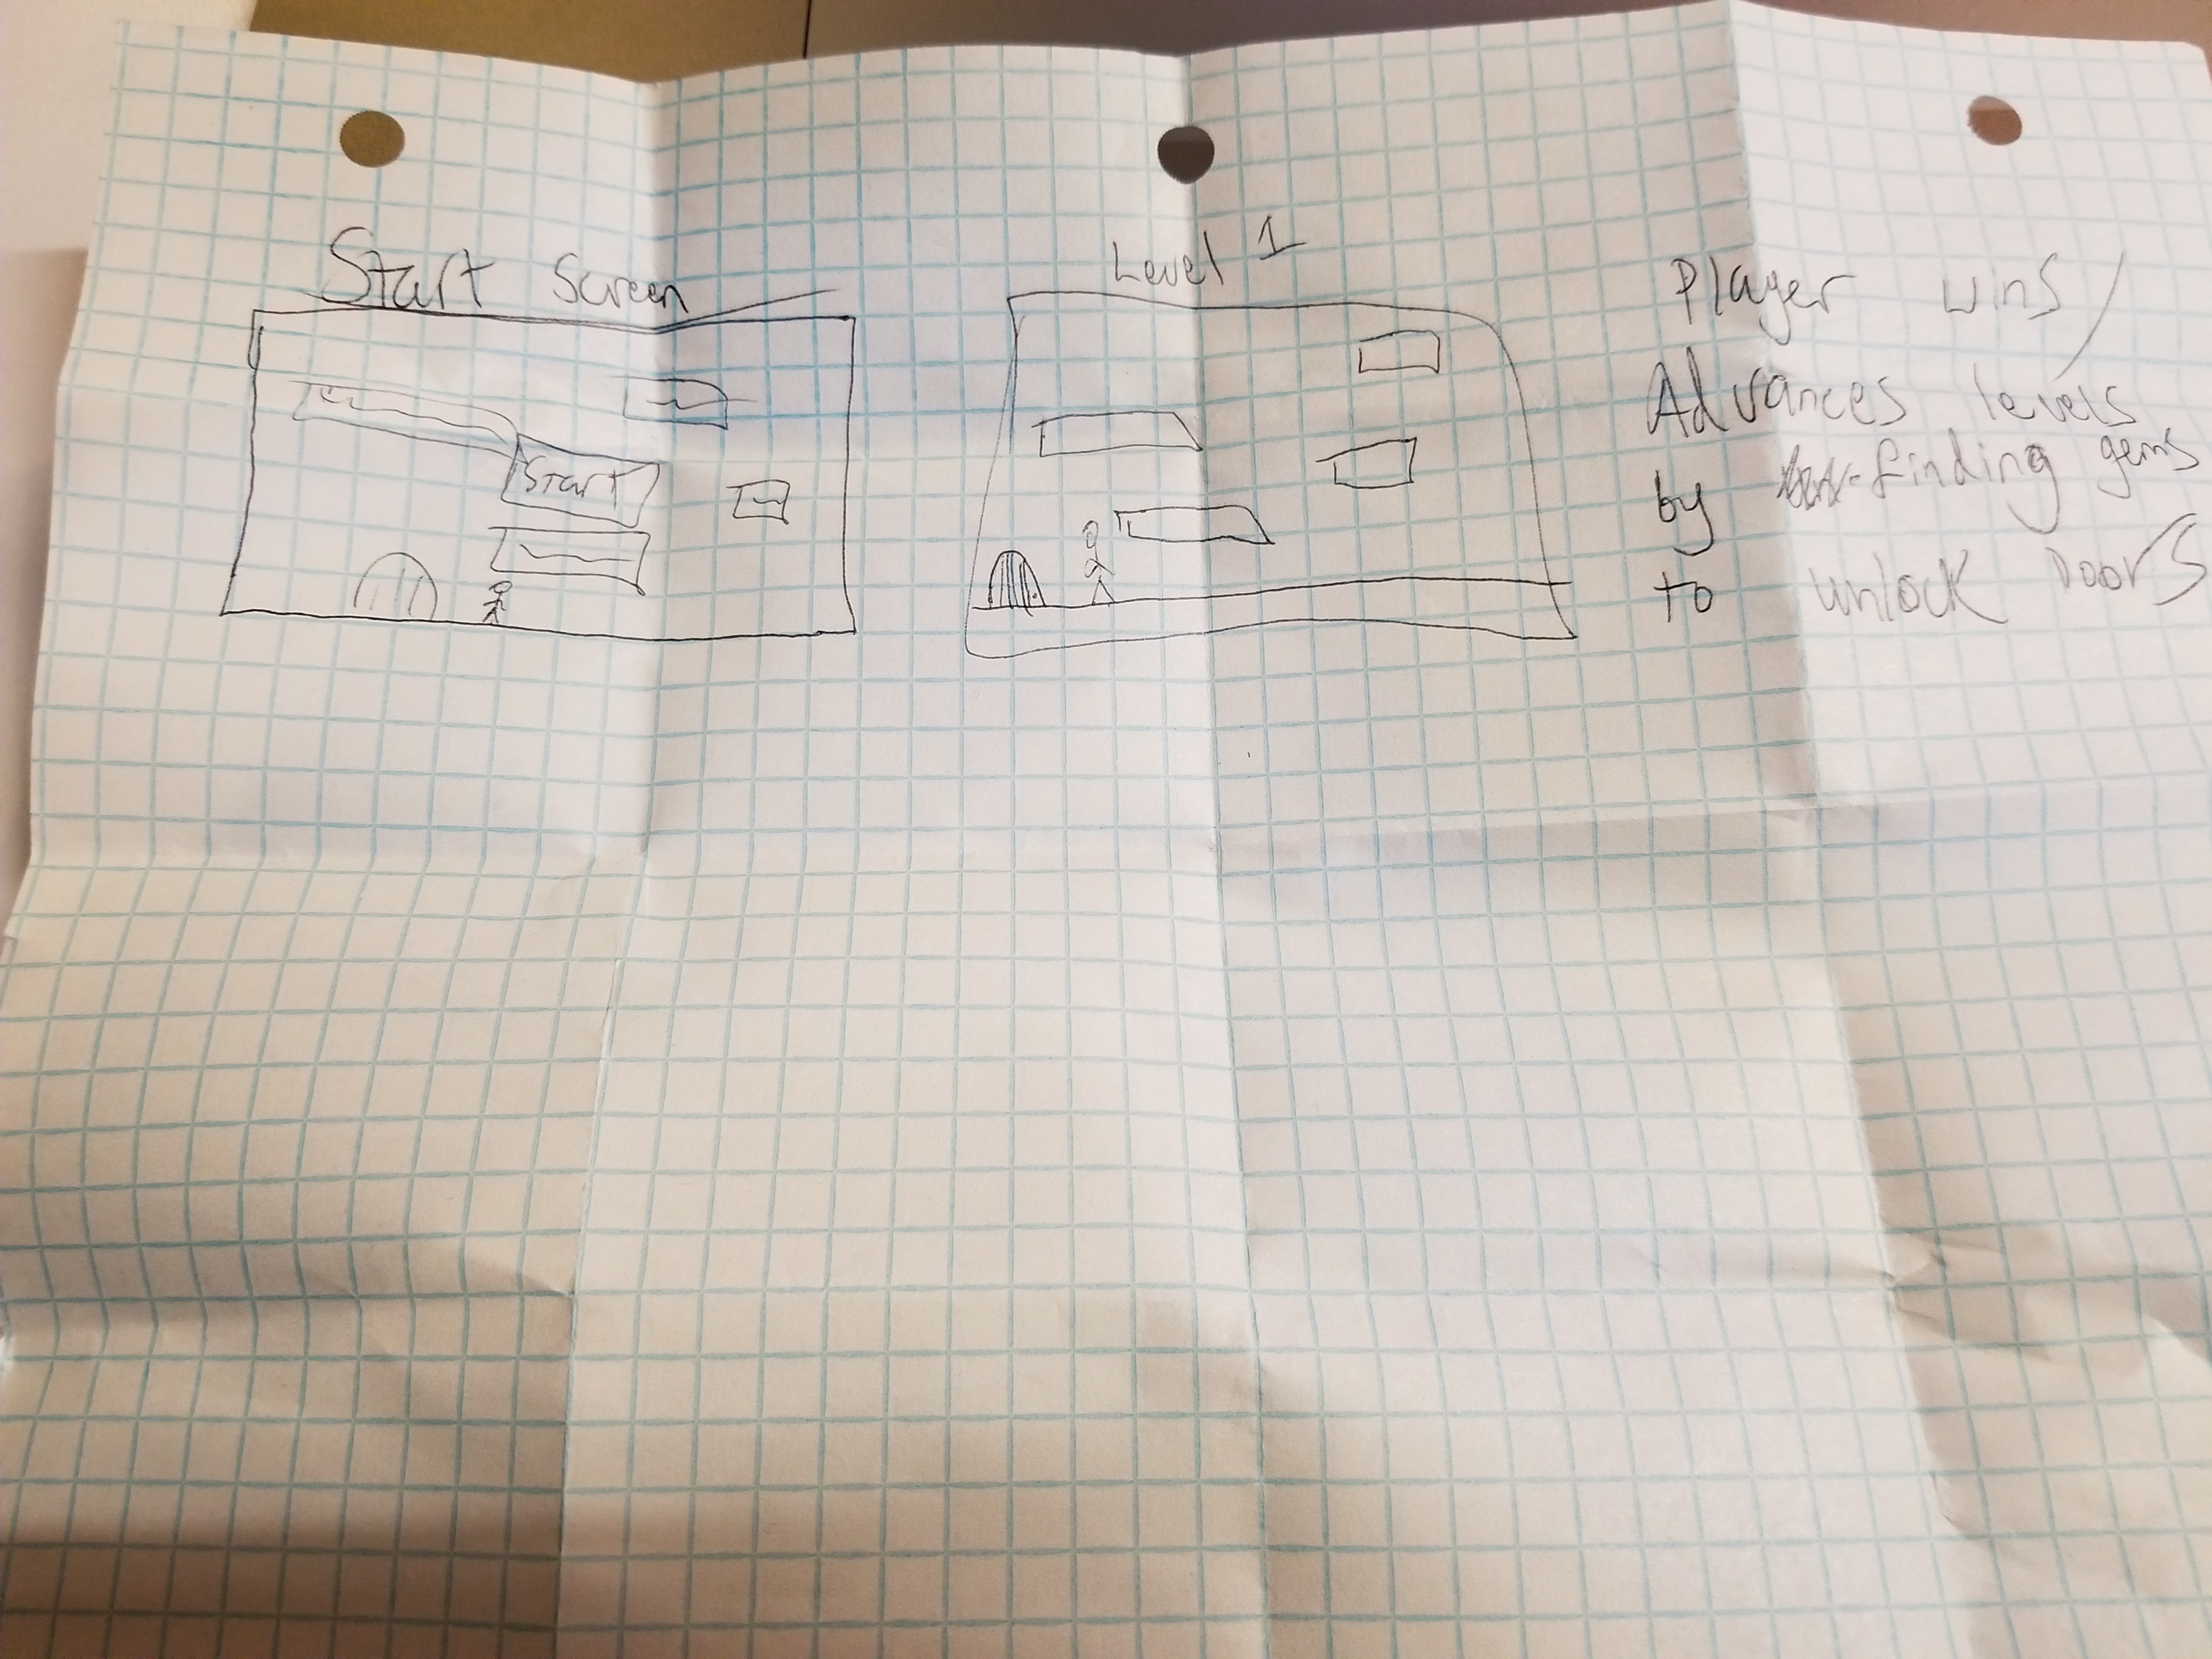 Start Screen
Start
Level 1
Player wins/
Advances levels
by finding gems
to unlock Doors